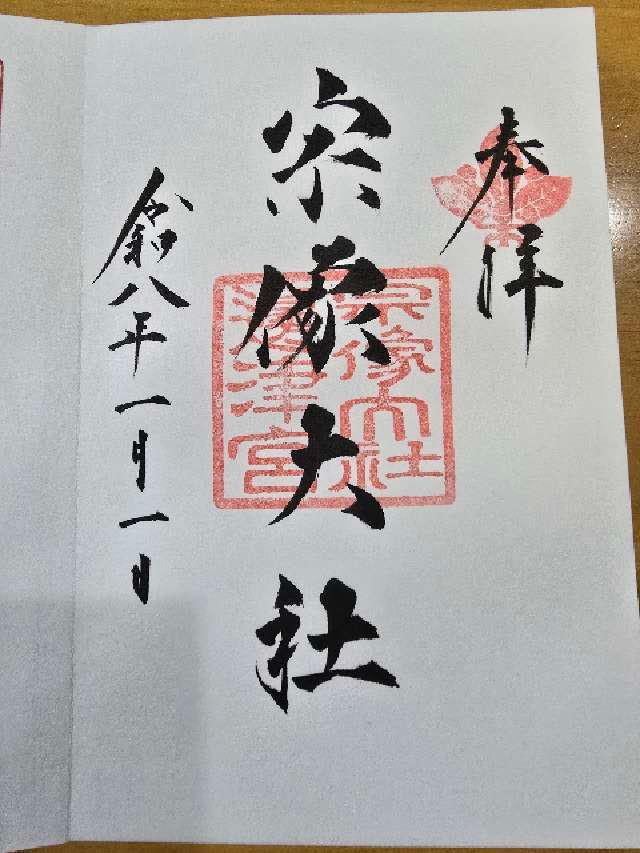 奉拝
宗像大社
宗像大社
邊津宮
令和八年一月一日